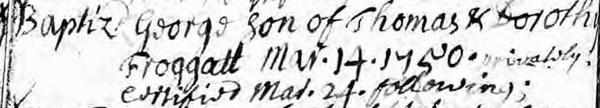 Baptiz George Son of Thomas & Doroth
Froggatt Mar. 14. 1750. privately.
Certified Mar. 24. following;